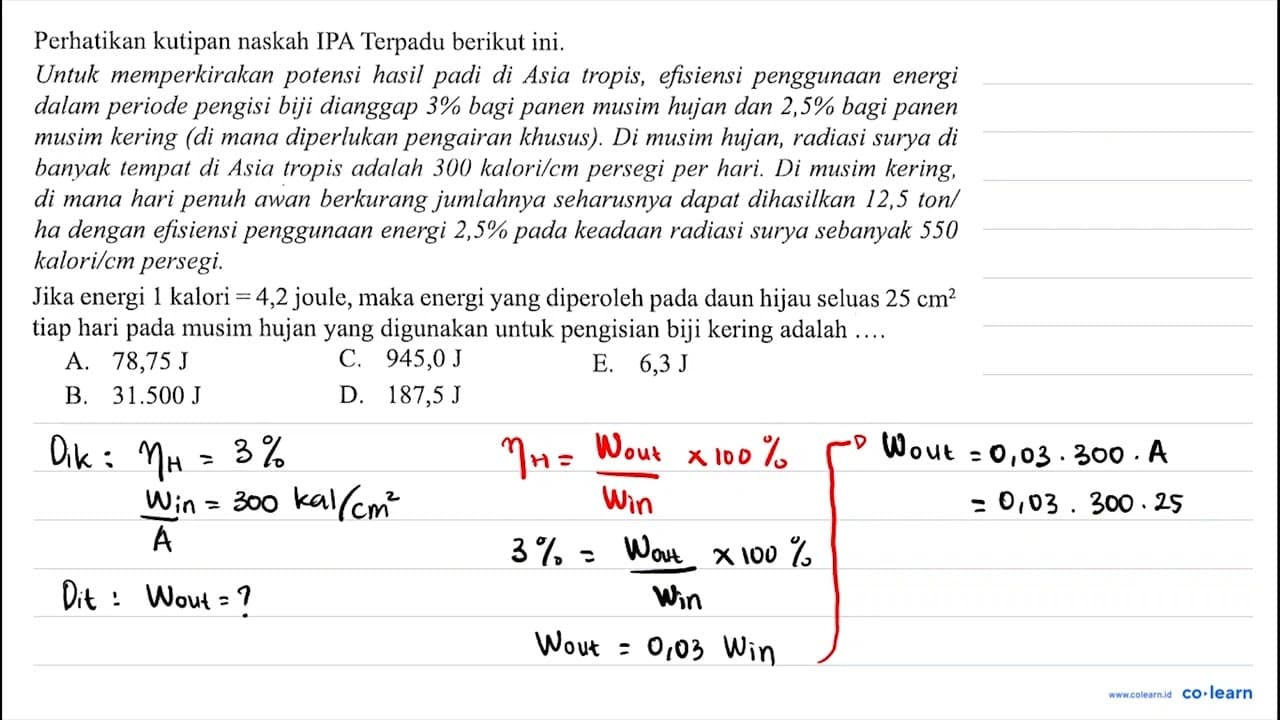 Perhatikan kutipan naskah IPA Terpadu berikut ini.
Untuk memperkirakan potensi hasil padi di Asia tropis, efisiensi penggunaan energi
dalam periode pengisi biji dianggap 3% bagi panen musim hujan dan 2,5% bagi panen
musim kering (di mana diperlukan pengairan khusus). Di musim hujan, radiasi surya di
banyak tempat di Asia tropis adalah 300 kalori/cm persegi per hari. Di musim kering,
di mana hari penuh awan berkurang jumlahnya seharusnya dapat dihasilkan 12,5 ton/
ha dengan efisiensi penggunaan energi 2,5% pada keadaan radiasi surya sebanyak 550
kalori/cm persegi.
Jika energi 1 kalori = 4,2 joule, maka energi yang diperoleh pada daun hijau seluas 25 cm²
tiap hari pada musim hujan yang digunakan untuk pengisian biji kering adalah ....
A. 78,75 J C. 945,0 J E. 6,3 J
B. 31.500 J D. 187,5 J
Dik : ηH = 3%
Win/A = 300 kal/cm²
Dit : Wout = ?
ηH = Wout/Win × 100%
3% = Wout/Win × 100%
Wout = 0,03 Win
Wout = 0,03 . 300 . A
= 0,03 . 300 . 25
www.colearn.id co·learn